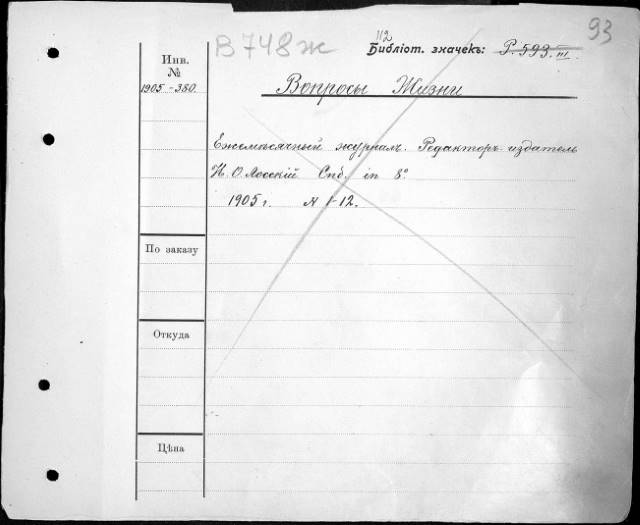 93
В 748ж
112
Библіот. значекъ: Р. 593. III.
Инв.
№
1905-380.
Вопросы Жизни
Ежемѣсячный журналъ. Редакторъ издатель
Н. О. Лосскій Спб. in 8º
1905 г. № 1-12.
По заказу
Откуда
Цѣна